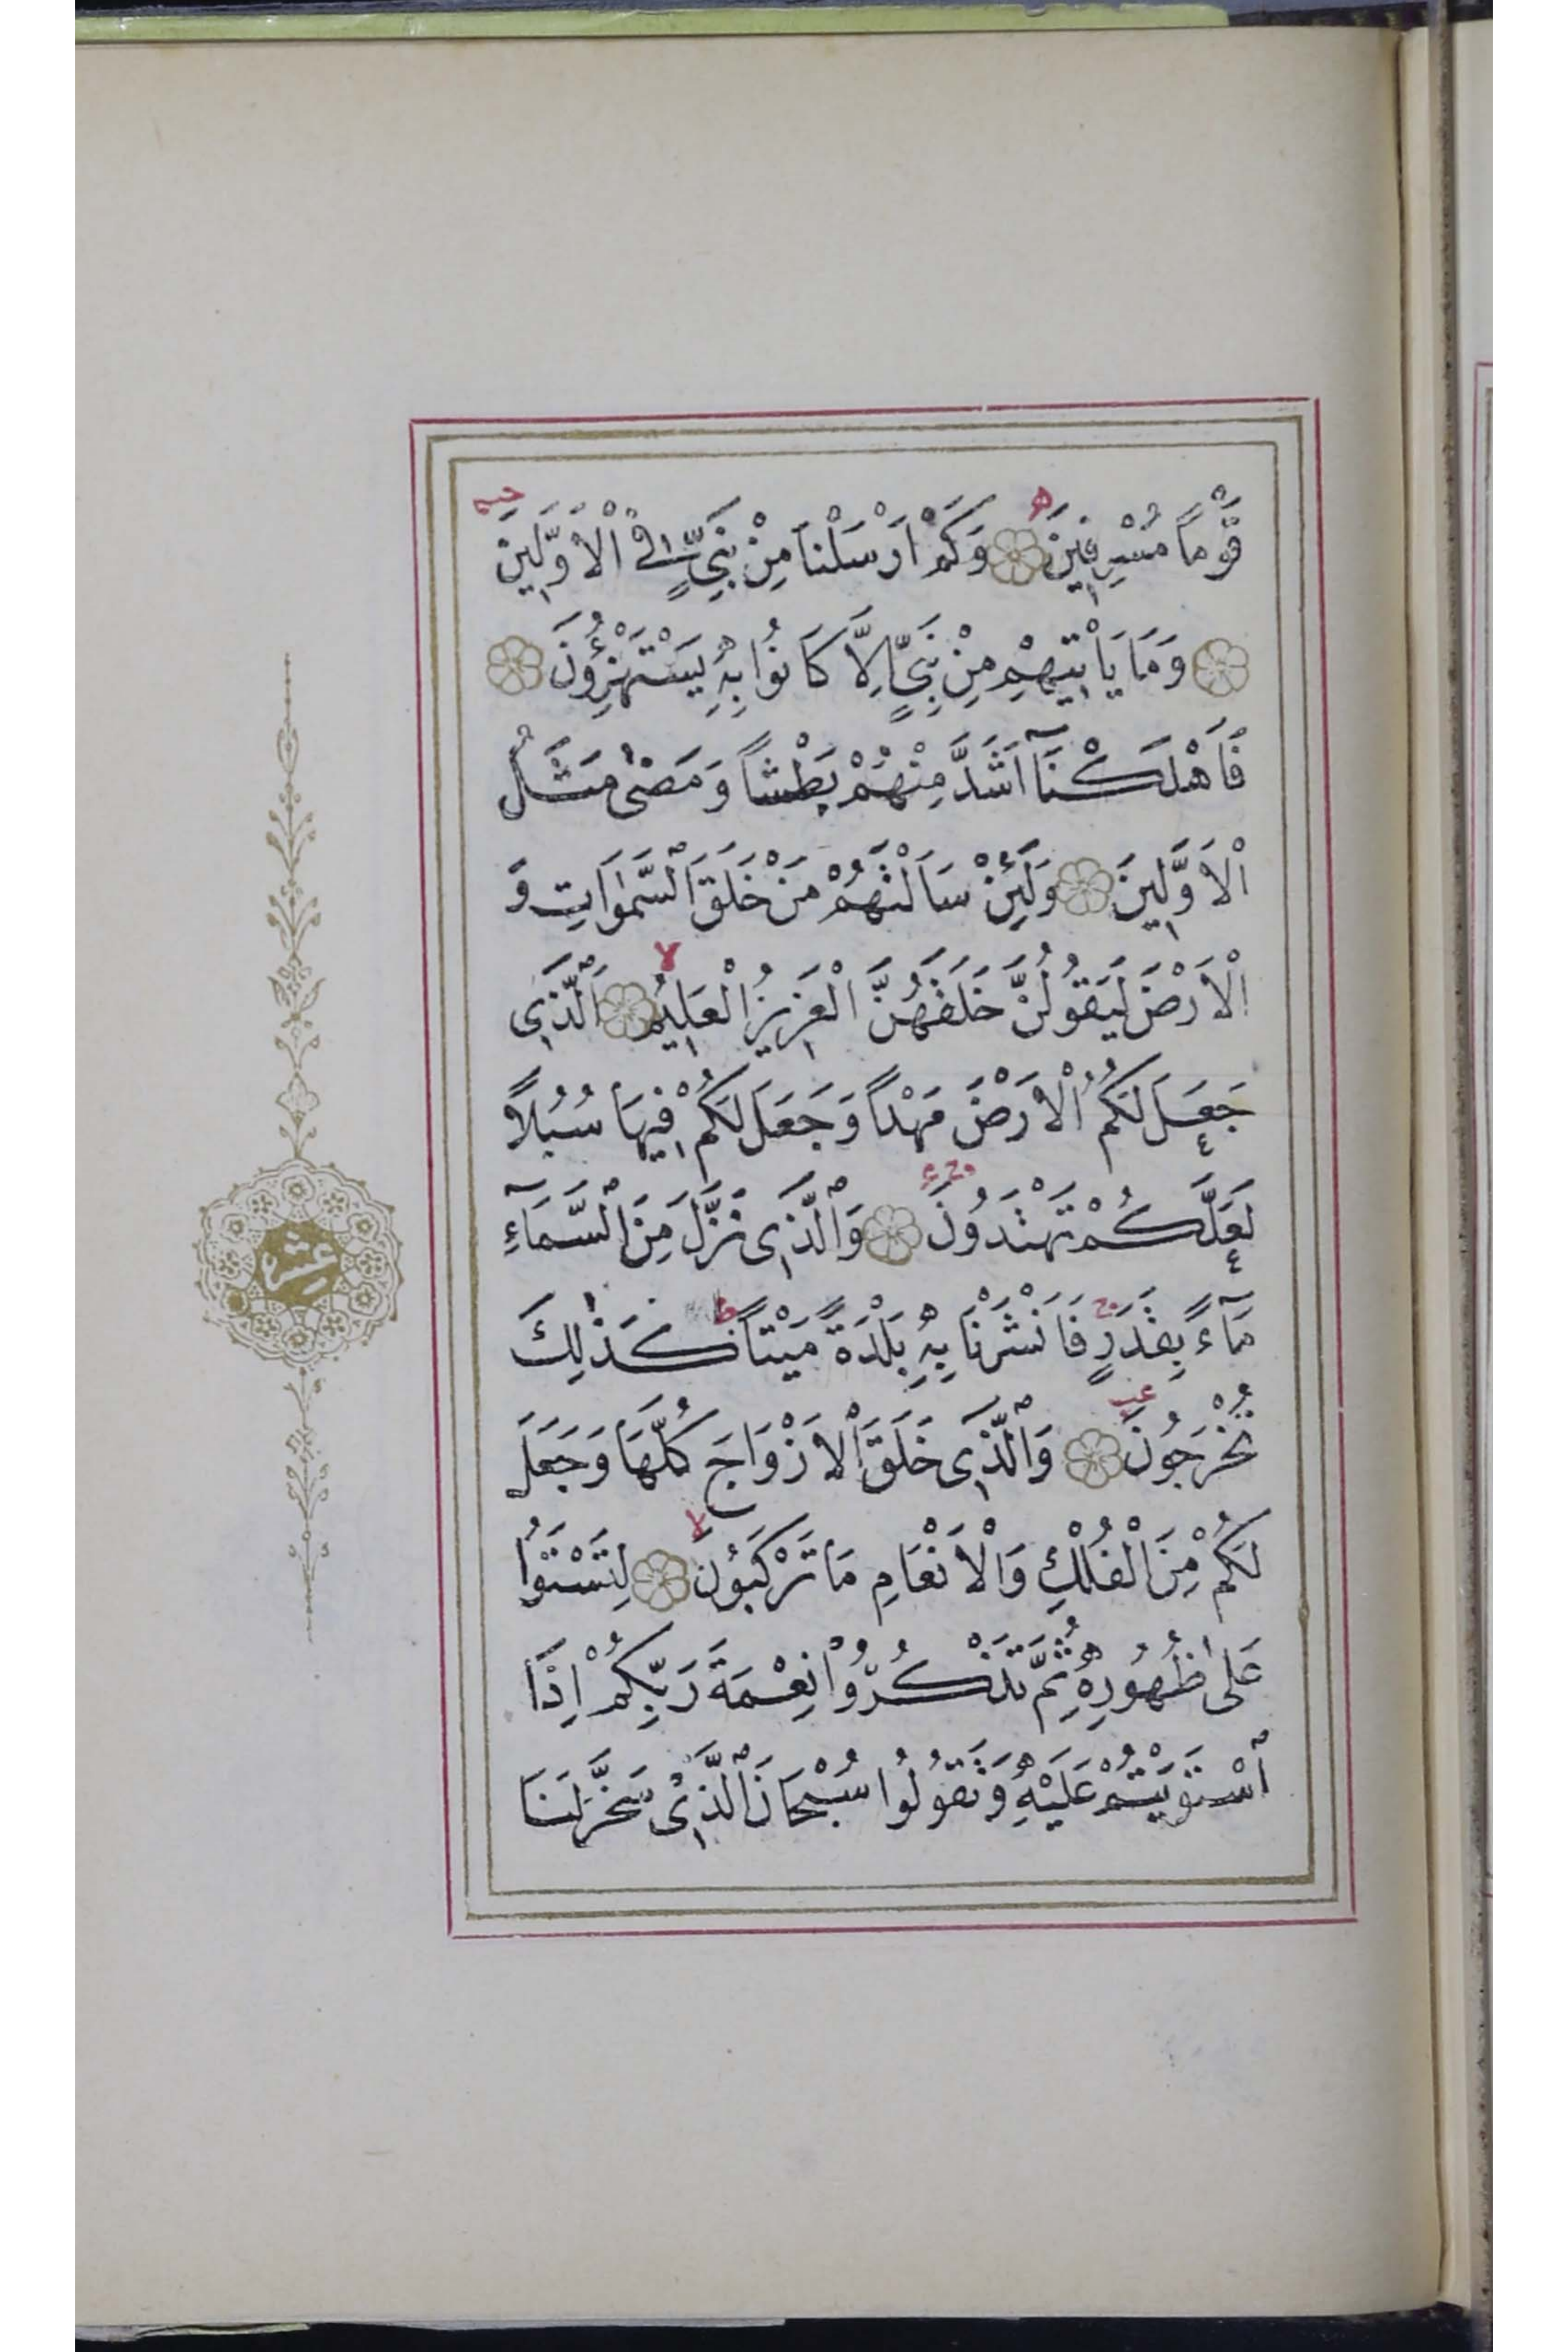 قَوْماً مُسْرِفِينَ وَكَمْ اَرْسَلْنَا مِنْ نَبِيٍّ فِي الْاَوَّلِينَ
وَمَا يَاْتِيهِمْ مِنْ نَبِيٍّ اِلَّا كَانُوا بِهِ يَسْتَهْزِؤُنَ
فَاَهْلَكْنَٓا اَشَدَّ مِنْهُمْ بَطْشاً وَمَضٰى مَثَلُ
الْاَوَّلِينَ وَلَئِنْ سَاَلْتَهُمْ مَنْ خَلَقَ السَّمٰوَاتِ وَ
الْاَرْضَ لَيَقُولُنَّ خَلَقَهُنَّ الْعَزِيزُ الْعَلِيمُ اَلَّذِي
جَعَلَ لَكُمُ الْاَرْضَ مَهْداً وَجَعَلَ لَكُمْ فِيهَا سُبُلاً
لَعَلَّكُمْ تَهْتَدُونَ وَالَّذِي نَزَّلَ مِنَ السَّمَٓاءِ
مَٓاءً بِقَدَرٍ فَاَنْشَرْنَا بِهِ بَلْدَةً مَيْتاً كَذٰلِكَ
عشر
تُخْرَجُونَ وَالَّذِي خَلَقَ الْاَزْوَاجَ كُلَّهَا وَجَعَلَ
لَكُمْ مِنَ الْفُلْكِ وَالْاَنْعَامِ مَا تَرْكَبُونَ لِتَسْتَوُا
عَلٰى ظُهُورِهِ ثُمَّ تَذْكُرُوا نِعْمَةَ رَبِّكُمْ اِذَا
اسْتَوَيْتُمْ عَلَيْهِ وَتَقُولُوا سُبْحَانَ الَّذِي سَخَّرَ لَنَا